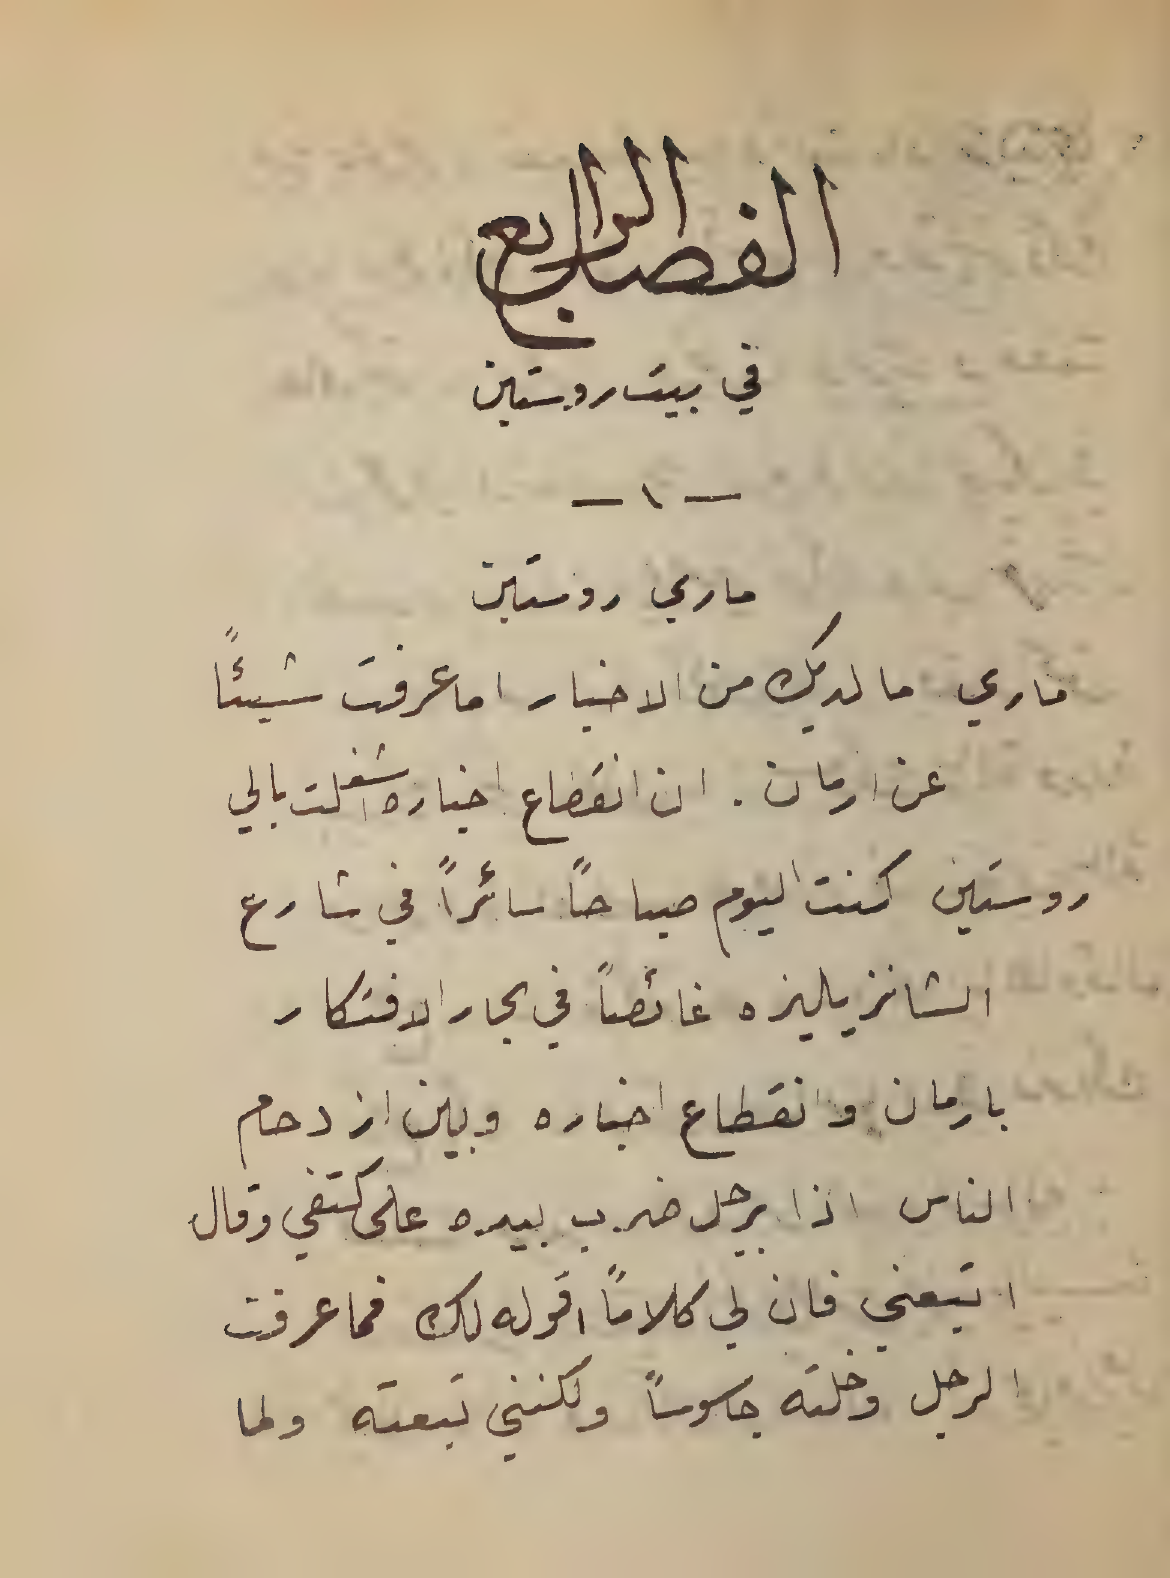 الفصل الرابع
في بيت روستين
— ١ —
ماري روستين
ماري ما لديك من الاخبار اما عرفت شيئاً
عن ارمان . ان انقطاع اخباره اشغلت بالي
روستين كنت اليوم صباحاً سائراً في شارع
الشانزيليزه غائصاً في بحار الافتكار
بارمان وانقطاع اخباره وبين ازدحام
الناس اذا برجل ضرب بيده على كتفي وقال
اتبعني فان لي كلاماً اقوله لك فما عرفت
الرجل وخلته جاسوساً ولكنني تبعته ولما